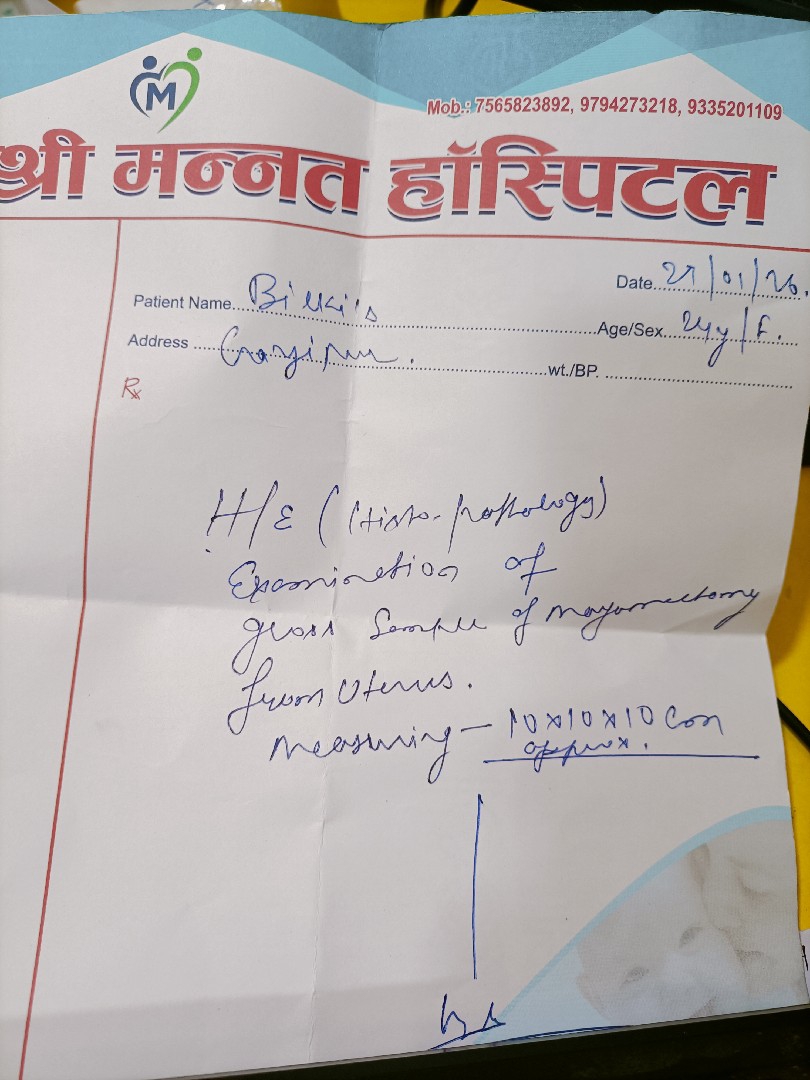 M
Mob.: 7565823892, 9794273218, 9335201109
श्री मन्नत हॉस्पिटल
Date 27/01/26.
Patient Name Bilkis
Age/Sex 24y/F.
Address Gazipur.
wt./BP.
Rx
H/E (Histo-pathology)
Examination of
gross Sample of Mayomectomy
from Uterus.
Measuring - 10x10x10 Cm
approx.